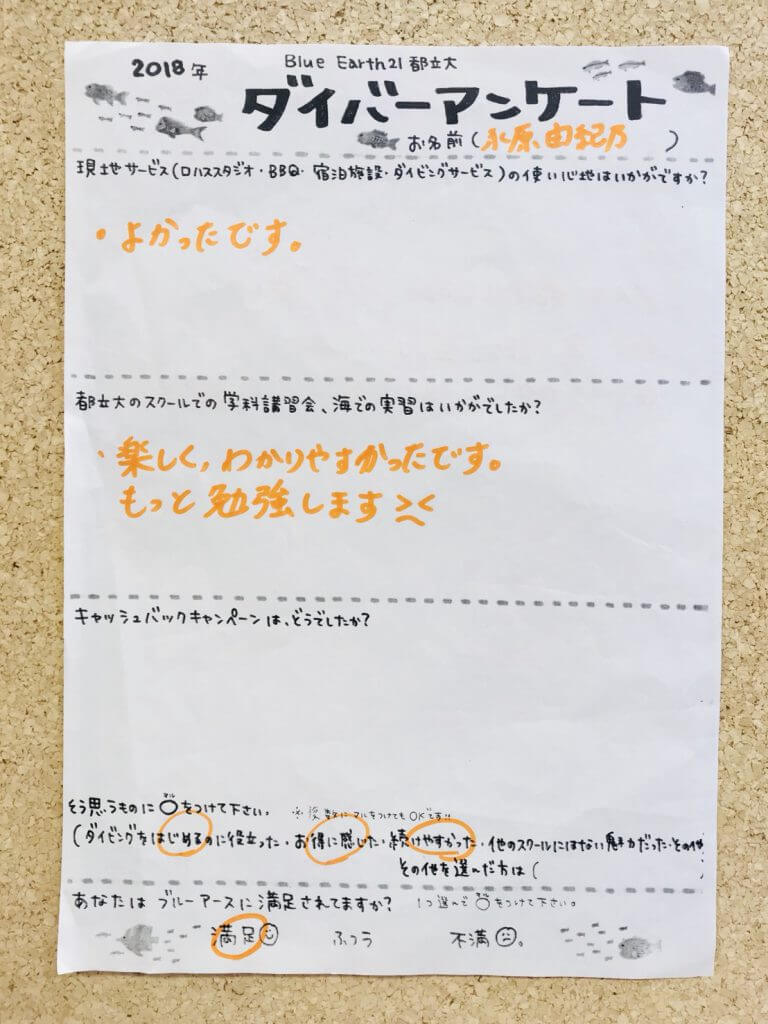 2018年
Blue Earth21 都立大
ダイバーアンケート
お名前(永原 由紀乃 )
現地サービス(ロハススタジオ・BBQ・宿泊施設・ダイビングサービス)の使い心地はいかがですか?
・よかったです。
都立大のスクールでの学科講習会、海での実習はいかがでしたか?
・楽しく,わかりやすかったです。
もっと勉強します><
キャッシュバックキャンペーンは、どうでしたか?
そう思うものに○をつけて下さい。 ※複数にマルをつけてもOKです!!
マル
(ダイビングをはじめるのに役立った・お得に感じた・続けやすかった・他のスクールにはない魅力だった・その他
その他を選んだ方は(
あなたは ブルーアースに満足されてますか? 1つ選んで○をつけて下さい。
満足 ふつう 不満。